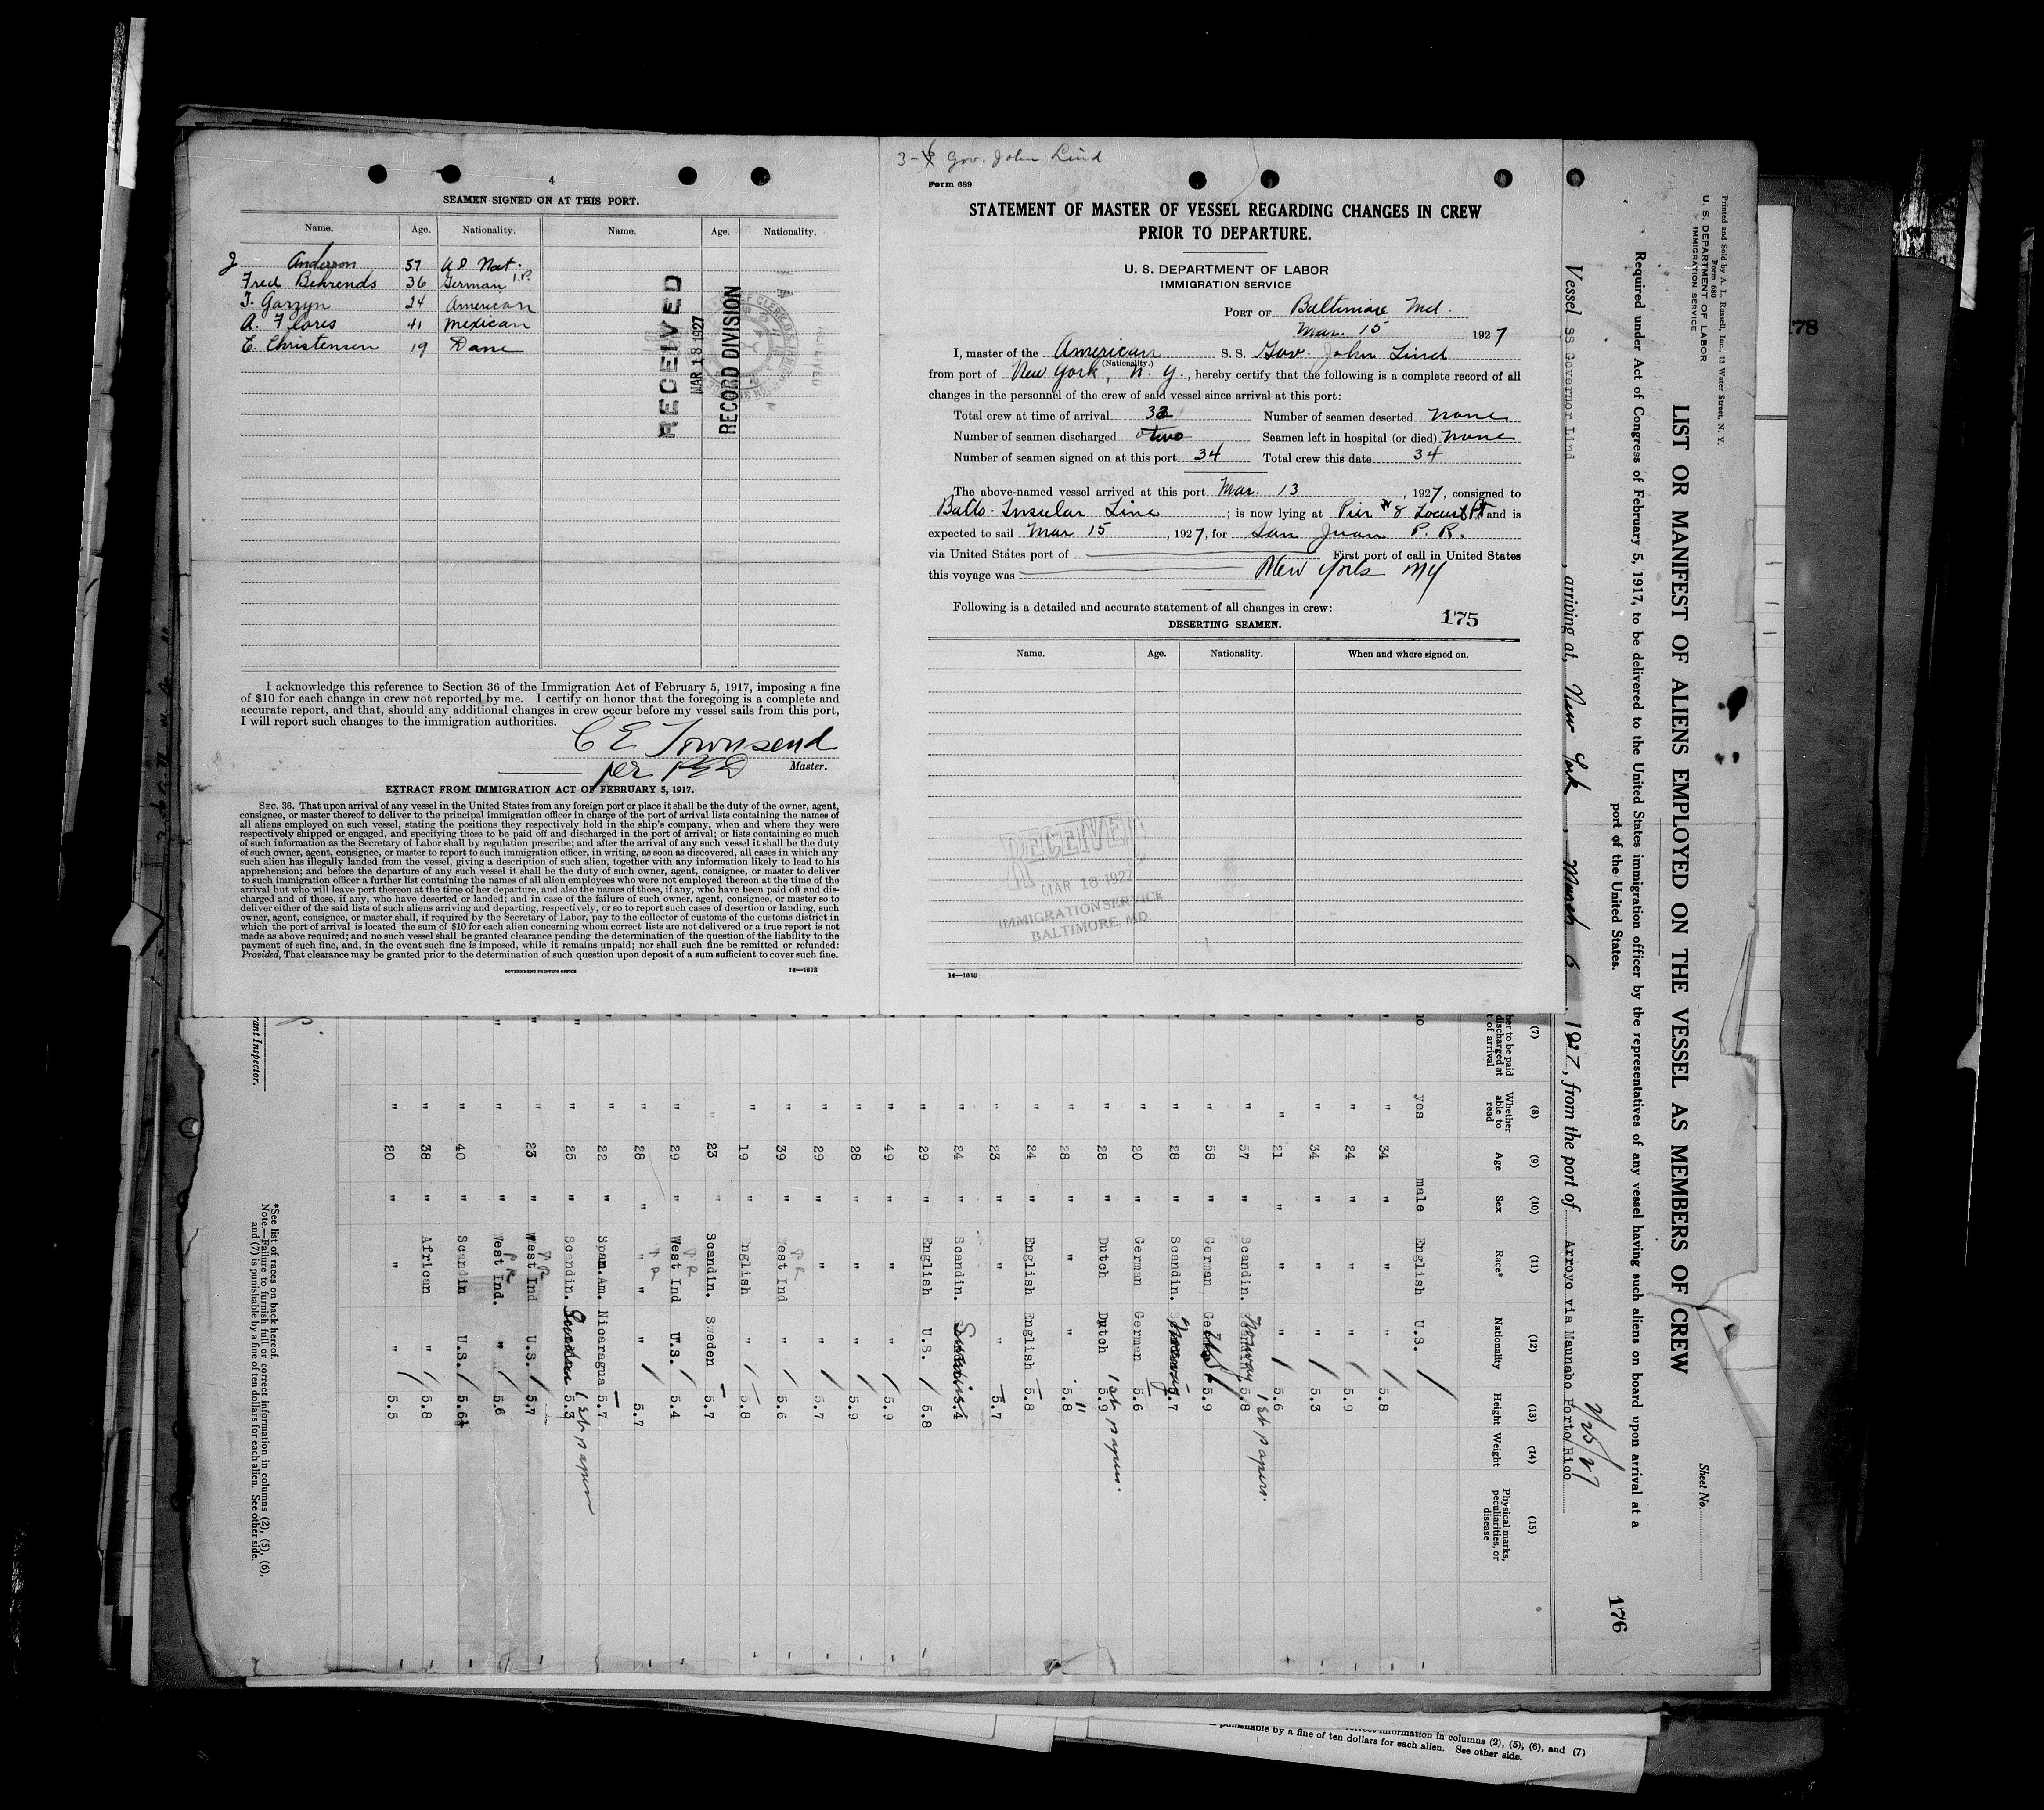 4
SEAMEN SIGNED ON AT THIS PORT.
Name. Age. Nationality. Name. Age. Nationality.
J Anderson 57 U S Nat.
Fred Behrends 36 German 1.P.
T. Garzyn 24 American
A. Flores 41 Mexican
C. Christensen 19 Dane
RECEIVED
MAR 18 1927
RECORD DIVISION
I acknowledge this reference to Section 36 of the Immigration Act of February 5, 1917, imposing a fine
of $10 for each change in crew not reported by me. I certify on honor that the foregoing is a complete and
accurate report, and that, should any additional changes in crew occur before my vessel sails from this port,
I will report such changes to the immigration authorities.
C E Townsend
per
Master.
EXTRACT FROM IMMIGRATION ACT OF FEBRUARY 5, 1917.
SEC. 36. That upon arrival of any vessel in the United States from any foreign port or place it shall be the duty of the owner, agent,
consignee, or master thereof to deliver to the principal immigration officer in charge of the port of arrival lists containing the names of
all aliens employed on such vessel, stating the positions they respectively hold in the ship's company, when and where they were
respectively shipped or engaged, and specifying those to be paid off and discharged in the port of arrival; or lists containing so much
of such information as the Secretary of Labor shall by regulation prescribe; and after the arrival of any such vessel it shall be the duty
of such owner, agent, consignee, or master to report to such immigration officer, in writing, as soon as discovered, all cases in which any
such alien has illegally landed from the vessel, giving a description of such alien, together with any information likely to lead to his
apprehension; and before the departure of any such vessel it shall be the duty of such owner, agent, consignee, or master to deliver
to such immigration officer a further list containing the names of all alien employees who were not employed thereon at the time of the
arrival but who will leave port thereon at the time of her departure, and also the names of those, if any, who have been paid off and dis-
charged and of those, if any, who have deserted or landed; and in case of the failure of such owner, agent, consignee, or master so to
deliver either of the said lists of such aliens arriving and departing, respectively, or so to report such cases of desertion or landing, such
owner, agent, consignee, or master shall, if required by the Secretary of Labor, pay to the collector of customs of the customs district in
which the port of arrival is located the sum of $10 for each alien concerning whom correct lists are not delivered or a true report is not
made as above required; and no such vessel shall be granted clearance pending the determination of the question of the liability to the
payment of such fine, and, in the event such fine is imposed, while it remains unpaid; nor shall such fine be remitted or refunded:
Provided, That clearance may be granted prior to the determination of such question upon deposit of a sum sufficient to cover such fine.
GOVERNMENT PRINTING OFFICE 14—1613
Gov. John Lind
Form 689
STATEMENT OF MASTER OF VESSEL REGARDING CHANGES IN CREW
PRIOR TO DEPARTURE.
U. S. DEPARTMENT OF LABOR
IMMIGRATION SERVICE
PORT OF Baltimore Md.
Mar. 15 1927
I, master of the American S. S. Gov. John Lind
(Nationality.)
from port of New York, N. Y., hereby certify that the following is a complete record of all
changes in the personnel of the crew of said vessel since arrival at this port:
Total crew at time of arrival 32 Number of seamen deserted none
Number of seamen discharged two Seamen left in hospital (or died) none
Number of seamen signed on at this port 34 Total crew this date 34
The above-named vessel arrived at this port Mar. 13, 1927, consigned to
Balto. Insular Line; is now lying at Pier #8 Locust Pt and is
expected to sail Mar 15, 1927, for San Juan P. R.
via United States port of First port of call in United States
this voyage was New York NY
Following is a detailed and accurate statement of all changes in crew:
175
DESERTING SEAMEN.
Name. Age. Nationality. When and where signed on.
RECEIVED
MAR 18 1927
IMMIGRATION SERVICE
BALTIMORE, MD.
14—1613
Printed and Sold by A. L. Russell, Inc., 13 Water Street, N. Y.
Form 680
U. S. DEPARTMENT OF LABOR
IMMIGRATION SERVICE
Sheet No.
LIST OR MANIFEST OF ALIENS EMPLOYED ON THE VESSEL AS MEMBERS OF CREW
Required under Act of Congress of February 5, 1917, to be delivered to the United States immigration officer by the representatives of any vessel having such aliens on board upon arrival at a
port of the United States.
176
Vessel SS Governor Lind, arriving at New York, March 6 1927, from the port of Arroyo via Maunabo Porto Rico
(7) (8) (9) (10) (11) (12) (13) (14) (15)
her to be paid discharged at t of arrival
Whether able to read
Age
Sex
Race*
Nationality
Height
Weight
Physical marks, peculiarities, or disease
yes male English U.S.
" 34 " " " 5.8
" 24 " " " 5.9
" 34 " " " 5.3
" 21 " " " 5.6
" 57 " Scandin. Norway 5.8 1st papers.
" 58 " German 5.9
" 28 " Scandin. Norway 5.7
" 20 " German German 5.6
" 28 " Dutch Dutch 5.9 1st papers.
" 28 " " " 5.8 "
" 24 " English English 5.8
" 23 " " " 5.7
" 24 " Scandin. 5.4
" 29 " English U.S. 5.8
" 49 " " " 5.9
" 28 " " " 5.9
" 29 " " " 5.7
" 39 " West Ind " 5.6
" 19 " English " 5.8
" 23 " Scandin. Sweden 5.7
" 29 " West Ind U.S. 5.4
" 28 " " " 5.7
" 22 " Span.Am. Nicaragua 5.7
" 25 " Scandin. Sweden 5.3 1st papers
" 23 " West Ind U.S. 5.7
" " West Ind. " 5.6
" 40 " Scandin U.S. 5.6½
" 38 " African " 5.8
" 20 " " " 5.5
rant Inspector.
*See list of races on back hereof.
Note.—Failure to furnish full or correct information in columns (2), (5), (6),
and (7) is punishable by a fine of ten dollars for each alien. See other side.
178
information in columns (2), (5), (6), and (7)
punishable by a fine of ten dollars for each alien. See other side.